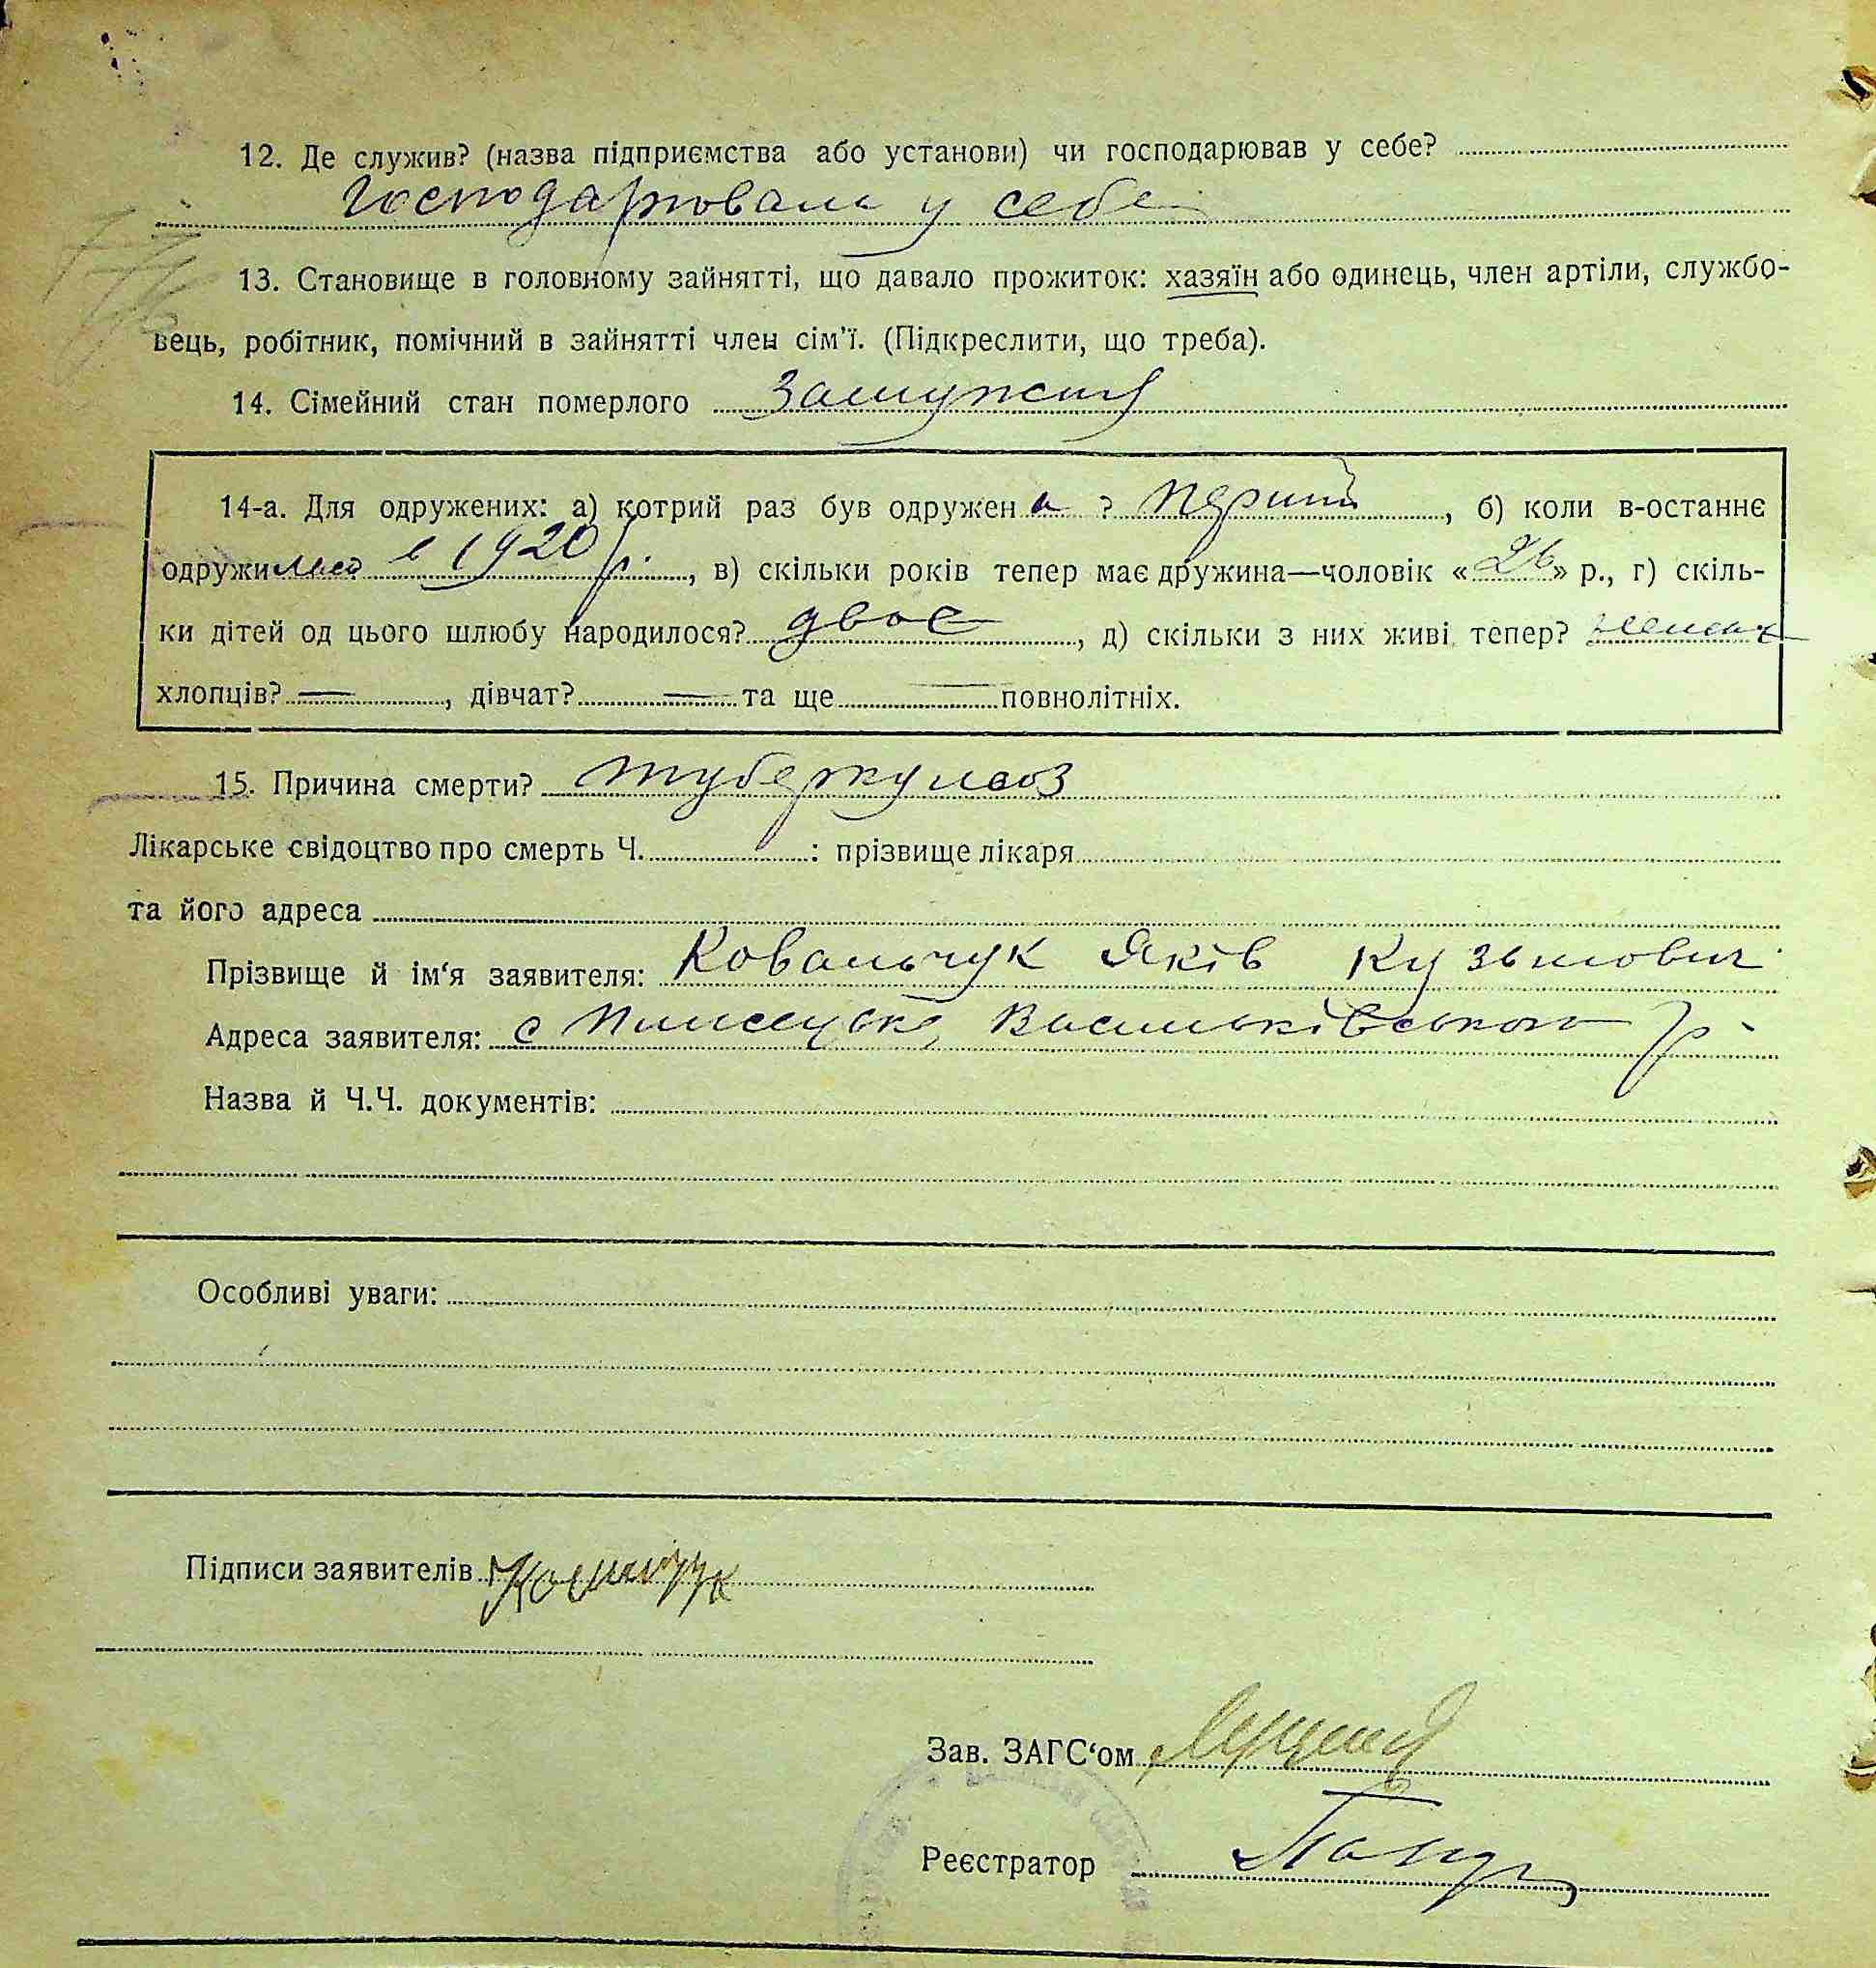 12. Де служив? (назва підприємства або установи) чи господарював у себе?
Господарювала у себе
13. Становище в головному зайнятті, що давало прожиток: хазяїн або одинець, член артіли, службо-
вець, робітник, помічний в зайнятті член сім'ї. (Підкреслити, що треба).
14. Сімейний стан померлого замужня
14-а. Для одружених: а) котрий раз був одружен а ? перший, б) коли в-останнє
одружилась в 1920 р., в) скільки років тепер має дружина—чоловік «26» р., г) скіль-
ки дітей од цього шлюбу народилося? двоє, д) скільки з них живі тепер? немає
хлопців? —, дівчат? — та ще — повнолітніх.
15. Причина смерти? туберкульоз
Лікарське свідоцтво про смерть Ч. : прізвище лікаря
та його адреса
Прізвище й ім'я заявителя: Ковальчук Яків Кузьмович
Адреса заявителя: с Васильківського р.
Назва й Ч.Ч. документів:
Особливі уваги:
Підписи заявителів
Зав. ЗАГС'ом
Реєстратор